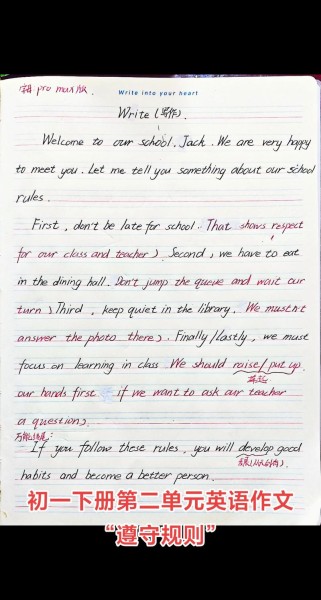 pro max版.
Write into your heart
Write (写作).
Welcome to our school, Jack. We are very happy
to meet you. Let me tell you something about our school
rules.
First, don't be late for school. That shows respect
for our class and teacher) Second, we have to eat
in the dining hall. Don't jump the queue and wait our
turn) Third, keep quiet in the library. We mustn't
answer the photo there). Finally/Lastly, we must
focus on learning in class. We should raise/put up
举起
our hands first if we want to ask our teacher
a question)
万能结尾:
If you follow these rules, you will develop good
habits and become a better person.
初一下册第二单元英语作文
“遵守规则”